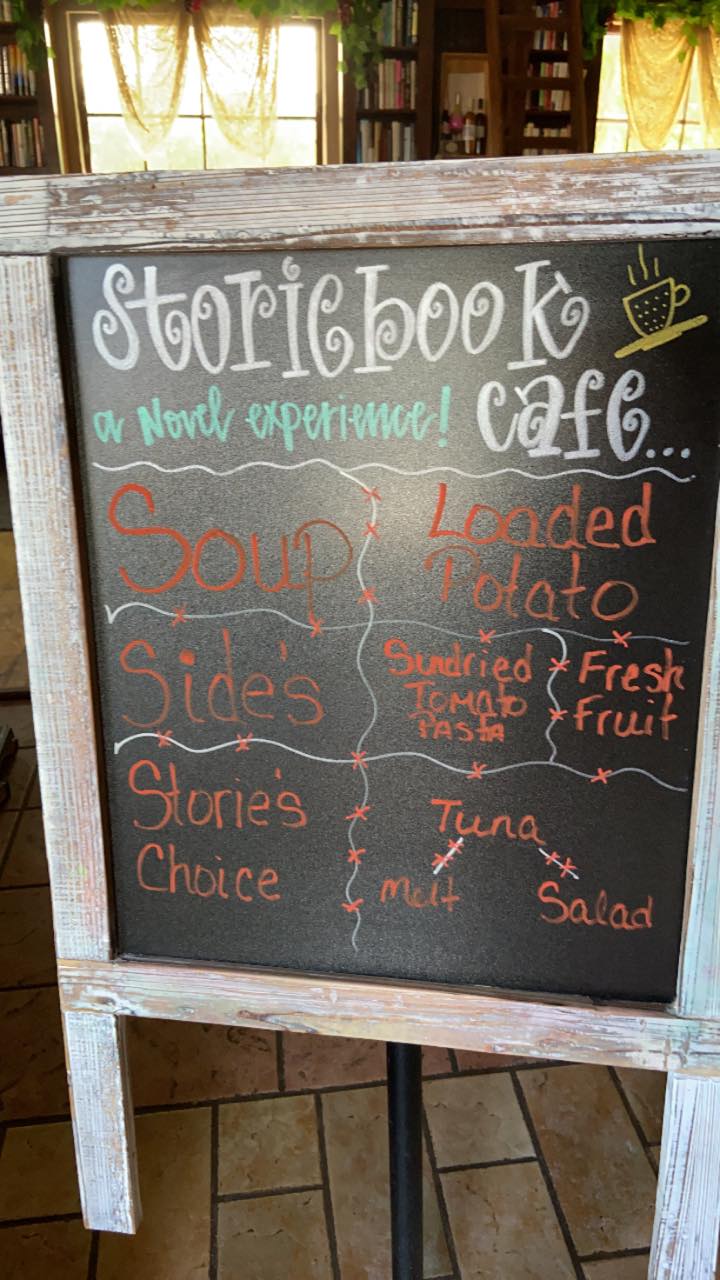 Storiebook
a Novel experience! cafe...
Soup
Loaded
Potato
Side's
Sundried
Tomato
Pasta
Fresh
Fruit
Storie's
Choice
Tuna
Melt
Salad